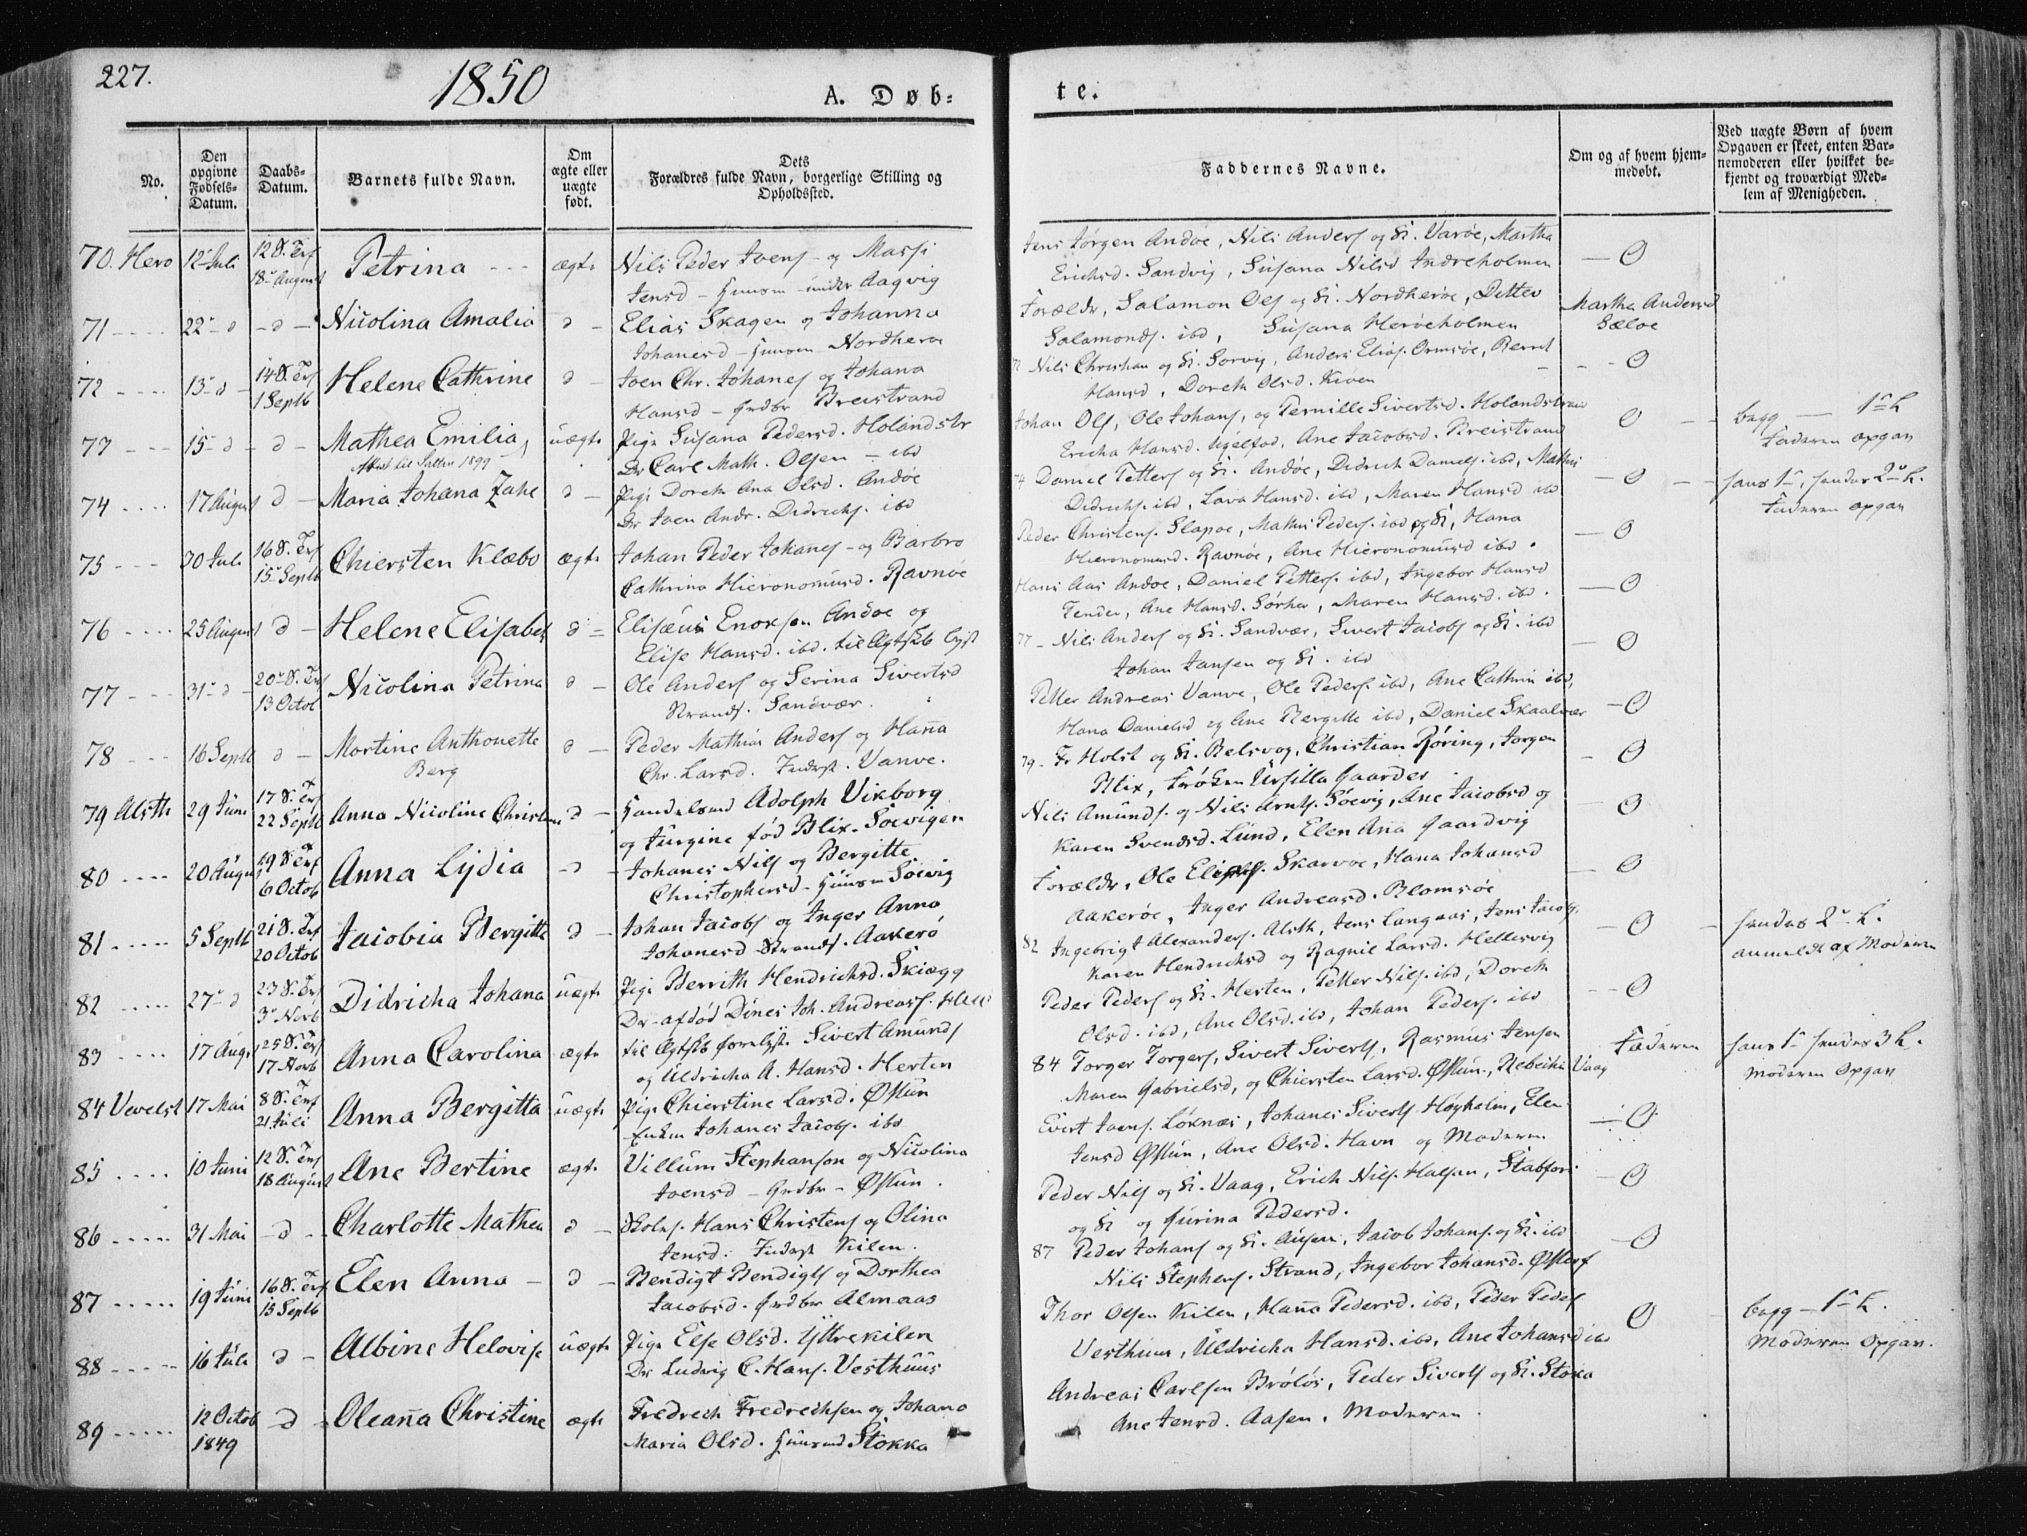 227.
1850
A. Døb-
te.
No.
Den opgivne Fødsels-Datum.
Daabs-Datum.
Barnets fulde Navn.
Om ægte eller uægte født.
Dets Forældres fulde Navn, borgerlige Stilling og Opholdssted.
Faddernes Navne.
Om og af hvem hjemmedøbt.
Ved uægte Børn af hvem Opgaven er skeet, enten Barnemoderen eller hvilket bekjendt og troværdigt Medlem af Menigheden.
70. Hero 12 Juli 12 S. Tr 18 August Petrina ægte Nils Peder Joens og Massi
Jensd - Huusm under Aagvig
Jens Jørgen Andøe, Nils Anders og K. Varøe, Martha
Erichsd. Sandvig, Susana Nilsd Indreholmen 0
71 22 d d Nicolina Amalia d Elias Skagen og Johanna
Johanesd - Huusm Nordherøe
Forældr, Salamon Ols og K. Nordherøe, Detlev
Salamons. ibd, Susana Herøeholmen
Martha Andersd Sæløe
72 13 d 14 S. Tr 1 Septb Helene Cathrine d Joen Chr. Johanes og Johana
Hansd - Grdbr Breistrand
Nils Christian og K. Sørvig, Anders Elias. Ormsøe, Bernt
Hansd, Doreth Olsd. Kiøen 0
73 15 d d Mathea Emilia uægte Pige Susana Pedersd. Holandstr
Attest til Salten 1899
Dr Carl Math. Olsen - ibd
Johan Ols, Ole Johans, og Pernille Sivertsd. Holandstrand
Ericha Hansd. Ane Jacobsd. Breistrand 0
begg 1 L
Faderen opgav
74 17 August d Maria Johana Zahl d Pige Doreth Ana Olsd. Andøe
Dr Joen Andr. Didrichs. ibd
74 Daniel Petters og K. Andøe, Didrich Daniels. ibd, Mathis
Didrichs. ibd, Lava Hansd. ibd, Maren Hansd ibd 0
hans 1, hendes 2 L.
Faderen opgav
75 30 Juli 16 S. Tr 15 Septb Chiersten Klæbo ægte Johan Peder Johanes - og Barbro
Cathrina Hieronomusd. Ravnøe
Peder Christens. Slapøe, Mathis Peders. ibd og K, Hana
Hieronomusd. Ravnøe, Ane Hieronomusd ibd. 0
76 25 August d Helene Elisabet d Elisæus Enoksen Andøe og
Elise Hansd. ibd. til Ægtskb lyst
Hans Aas Andøe, Daniel Petters. ibd, Ingebor Hansd
Tender, Ane Hansd. Sørher, Maren Hansd. ibd. 0
77 31 d 20 S. Tr 13 Octob Nicolina Petrina d Ole Anders og Serina Sivertsd
Strands. Sandvær.
77 - Nils Anders og K. Sandvær, Sivert Jacobs og K. ibd
Johan Jansen og K. ibd 0
78 16 Septb d Martine Anthonette Berg d Peder Mathias Anders og Hanna
Chr. Larsd. Inderst. Vanve.
Petter Andreas Vanve, Ole Peders. ibd, Ane Cathrin ibd,
Hana Danielsd og Ane Bergitte ibd, Daniel Skaalvær 0
79 Alsth 29 Juni 17 S. Tr 22 Septb Anna Nicoline Christine d Handelsmd Adolph Vikborg
og Jurgine fød Blix. Søevigen
79 - Fr Holst og K. Belsvog, Christian Røring, Jørgen
Blix, Frøken Ursilla Gaarder 0
80 20 August 19 S. Tr 6 Octob Anna Lydia d Johanes Nils og Bergitte
Christophersd - Huusm Søevig
Nils Amunds. og Nils Arnts. Søevig, Ane Jacobsd og
Karen Svendsd. Lund, Elen Ana Gaardvig 0
81 5 Septb 21 S. Tr 20 Octob Jacobia Bergitte d Johan Jacobs og Inger Anna
Johanesd Strands. Aakerø
Forældr, Ole Skarvøe, Hana Johansd
Aakerøe, Inger Andreasd. Blomsøe 0
82 27 d 23 S. Tr 3 Novb Didricha Johana uægte Pige Berrith Hendrichsd. Skiegg
Dr - afdød Dines Joh. Andreass.
82 Ingebrigt Alexanders. Alsth, Jens Langaas, Jens Jacobs.
Karen Hendrichsd og Ragnil Larsd. Hellesvig 0
hendes 2 L.
anmeldt af Moderen
83 17 Aug. 25 S. Tr 17 Novb Anna Carolina ægte til Ægtskb forelyst Sivert Amunds
og Uldricha A. Hansd. Hesten
Peder Peders og K. Hesten, Petter Nils. ibd, Doreth
Olsd. ibd, Ane Olsd. ibd, Johan Peders. ibd 0
84 Vevelst 17 Mai 8 S. Tr 21 Juli Anna Bergitta uægte Pige Chierstine Larsd. Østun
Enkm Johanes Jacobs. ibd
84 Torger Torgers, Sivert Siverts, Rasmus Jensen
Maren Gabrielsd, og Chiersten Larsd. Østun, Rebecka Vaag
Faderen
hans 1 hendes 3 L.
Moderen opgav
85 10 Juni 12 S. Tr 18 August Ane Bertine ægte Villum Stephanson og Nicolina
Joensd - Grdbr - Østun.
Evert Joens. Løknæs, Johanes Siverts Høyholm, Elen
Jensd Østun, Ane Olsd. Havn og Moderen 0
86 31 Mai d Charlotte Mathea d Skolh. Hans Christens og Olina
Jensd. Inderst Kilen.
Peder Nils og K. Vaag, Erich Nils. Halsan, Stabfor.
og K og Jurina Pedersd. 0
87 19 Juni 16 S. Tr 15 Septb Elen Anna d Bendigt Bendigts og Dorthea
Jacobsd. Grdbr Almaas
87 Peder Johans og K. Aasen, Jacob Johans. og K. ibd
Nils Stephens. Strand, Ingebor Johansd. 0
88 16 Juli d Albine Helovise uægte Pige Else Olsd. Yttrekilen
Dr Ludvig C. Hans. Vesthuus
Thor Olsen Kilen, Hanna Pedersd. ibd, Peder Peders
Vesthuus, Uldricha Hansd. ibd, Ane Johansd ibd 0
begg - 1 L.
Moderen opgav.
89 12 Octob 1849 d Oleanna Christine ægte Fredrech Fredrechsen og Johana
Maria Olsd. Huusmd Stokka
Andreas Carlsen Brøløs, Peder Siverts og K. Stoka
Ane Jensd. Aasen. Moderen.